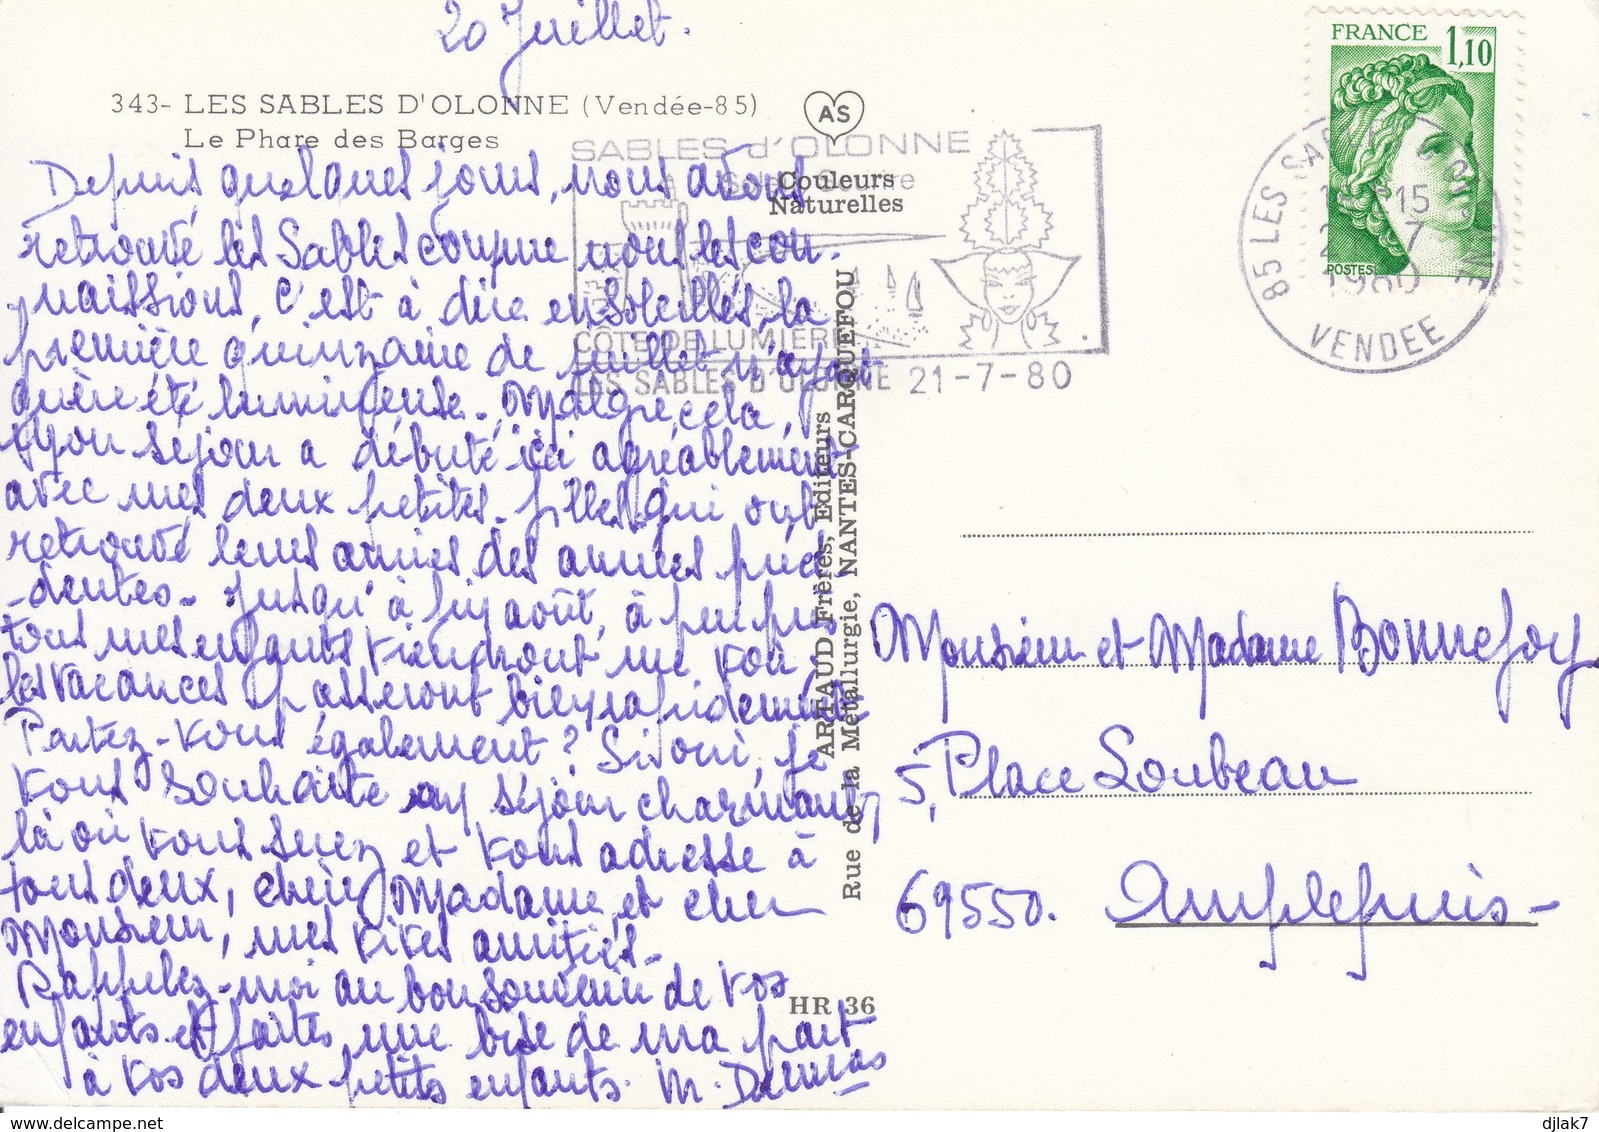 20 Juillet.
343- LES SABLES D'OLONNE (Vendée-85)
Le Phare des Barges
AS
Couleurs
Naturelles
Depuis quelques jours, nous avons
retrouvé les Sables comme nous les con-
naissions, c'est à dire ensoleillés, la
première quinzaine de juillet n'ayant
guère été lumineuse. Malgré cela,
mon séjour a débuté ici agréablement
avec mes deux petites-filles qui ont
retrouvé leurs amies des années précé
-dentes. Jusqu'à fin août, à peu près
tous mes enfants viendront me voir
les vacances passeront bien rapidement
Partez-vous également? Si oui, je
vous souhaite un séjour charmant,
là où vous serez et vous adresse à
tous deux, chère Madame, et cher
Monsieur, mes vives amitiés.
Rappelez-moi au bon souvenir de vos
enfants et faites une bise de ma part
à vos deux petits enfants. M.
SABLES d'OLONNE
CÔTE DE LUMIERE
LES SABLES D'OLONNE 21-7-80
ARTAUD Frères, Editeurs
Rue de la Métallurgie, NANTES-CARQUEFOU
HR 36
FRANCE 1,10
POSTES
85 LES SABLES D'OLONNE
15
7
1980
VENDEE
Monsieur et Madame Bonnefoy
5, Place Loubeau
69550. Amplepuis-
djlak7